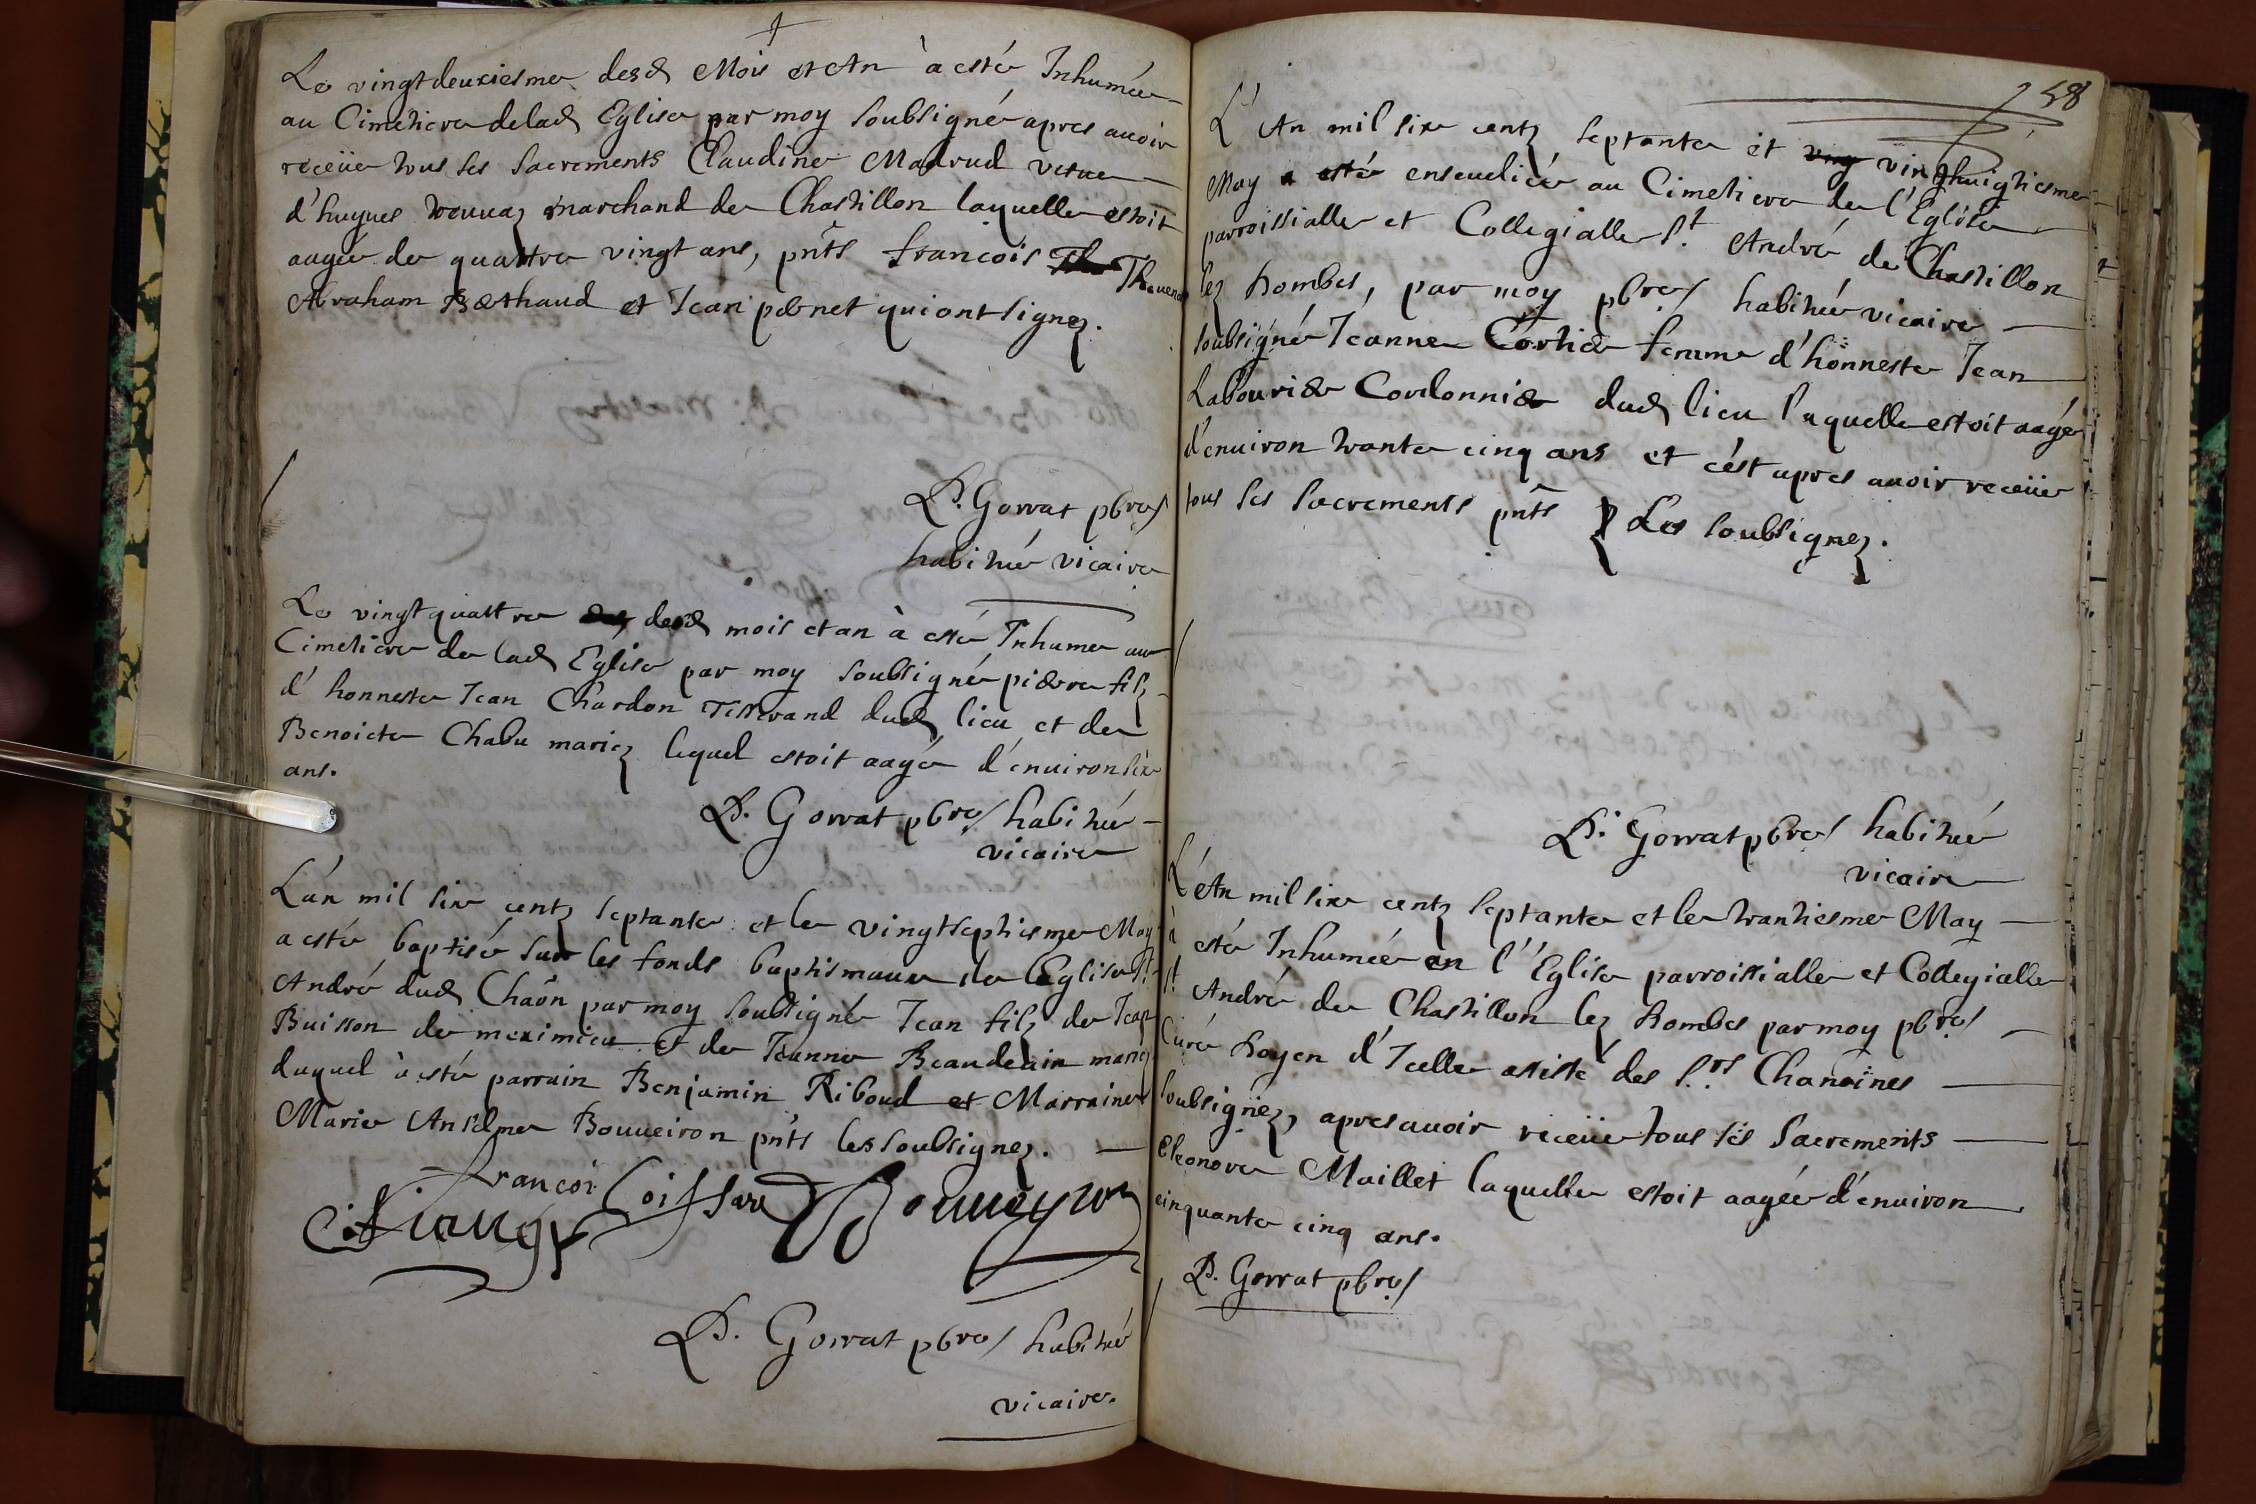 Le vingtdeuxiesme desd Mois et An à esté Inhumée
au Cimetiere de lad Eglise par moy soubsigné apres auoir
receüe tous ses sacrements Claudine Madrud vesue
d'huyues marchand de Chastillon laquelle estoit
aagée de quattre vingt ans, pñts françois Theuenet
Abraham Berthaud et Jean pernet qui ont signez.
P. Gorrat pbre/
habitué vicaire
Le vingt quattre desd mois et an à esté Inhume au
Cimetiere de lad Eglise par moy soubsigné pierre filz
d'honneste Jean Chardon Tisserand dud lieu et de
Benoicte Chabu mariez lequel estoit aagée d'enuiron six
ans.
P. Gorrat pbre/ habitué
vicaire
L'an mil six centz septante et le vingtseptiesme May
a esté baptisé sur les fonds baptismaux de l'Eglise St
André dud Chaõn par moy soubsigné Jean filz de Jean
Buisson de meximieu et de Jeanne Beaudrain mariez
duquel à esté parrain Benjamin Riboud et Marraine
Marie Anselme Bouueiron pñts les soubsignez.
françoi Coissard Bouueyron
P. Gorrat pbre/ habitué
vicaire.
258
L'An mil six centz septante et vingthuigtiesme
May a esté enseuelice au Cimetiere de l'Eglise
parroissialle et Collegialle St. André de Chastillon
lez Dombes, par moy pbre/ habitué vicaire
soubsigné Jeanne Cortier femme d'honneste Jean
Labourier Cordonnier dud lieu laquelle estoit aagée
d'enuiron trante cinq ans et c'est apres auoir receüe
tous ses sacrements pñts Les soubsignez.
P. Gorrat pbre/ habitué
vicaire
L'An mil six centz septante et le trantiesme May
à esté Inhumée en l'Eglise parroissialle et Collegialle
St André de Chastillon lez Dombes par moy pbre/
Curé Doyen d'Icelle assisté des S.rs Chanoines
soubsignez, apres auoir receüe tous ses sacrements
Eleonore Maillet laquelle estoit aagée d'enuiron
cinquante cinq ans.
P. Gorrat pbre/